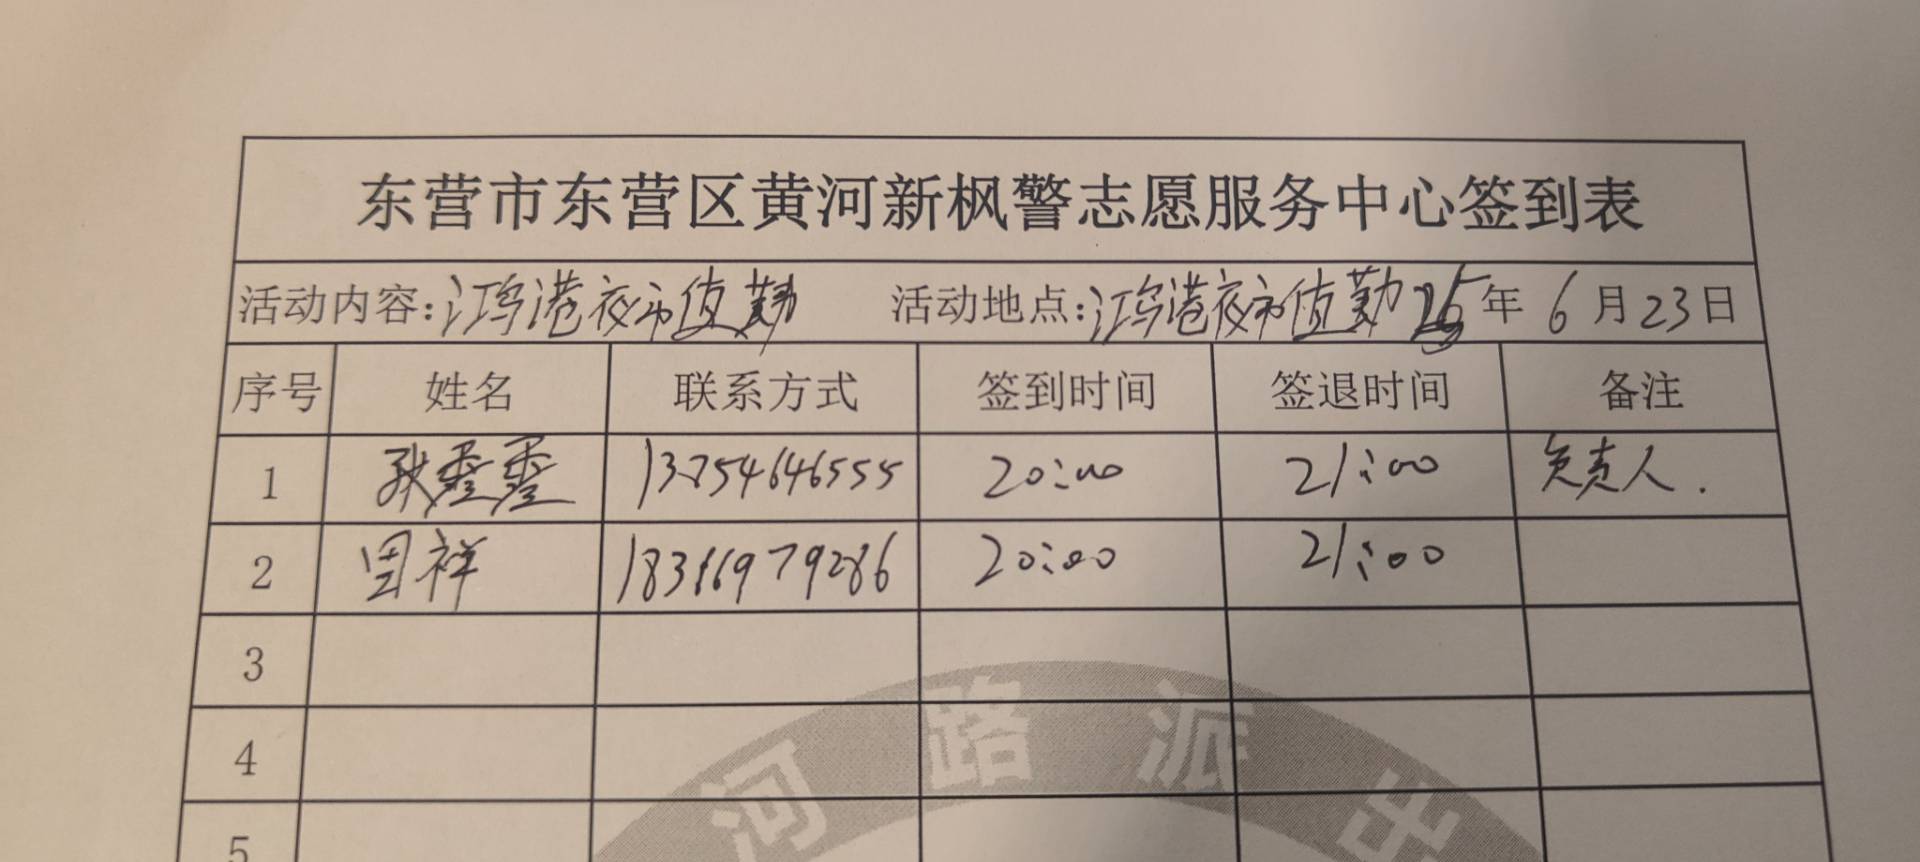 东营市东营区黄河新枫警志愿服务中心签到表
活动内容:鸿港夜市值勤 活动地点:鸿港夜市值勤 25年 6月23日
序号 姓名 联系方式 签到时间 签退时间 备注
1 13754646555 20:00 21:00 负责人.
2 祥 18316979286 20:00 21:00
3
4
5
河路派出